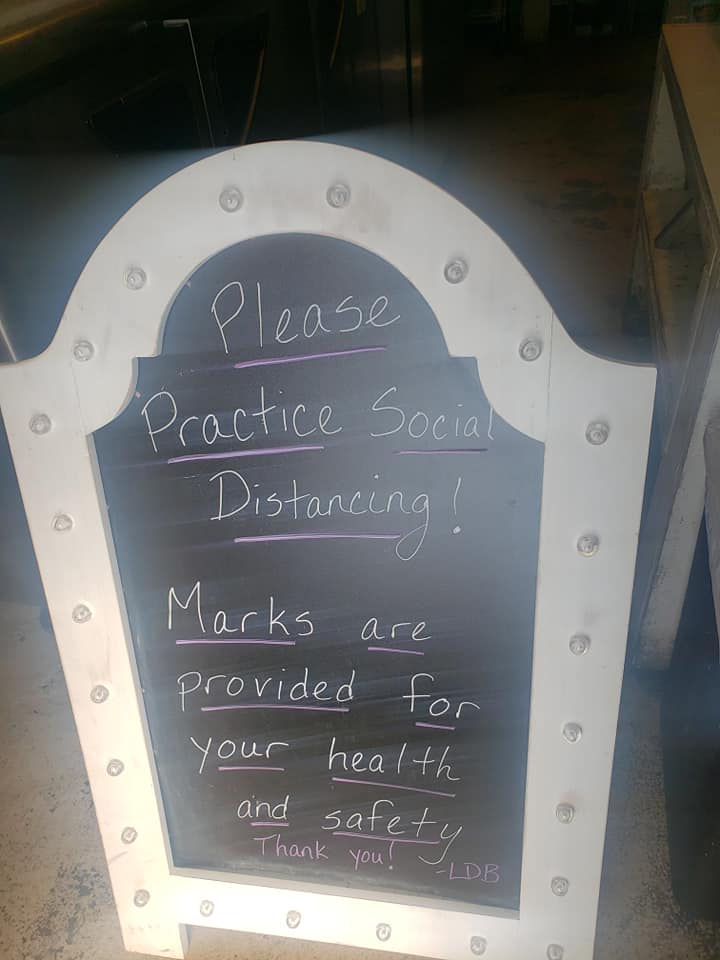 Please
Practice Social
Distancing!
Marks are
provided for
your health
and safety
Thank you!
-LDB